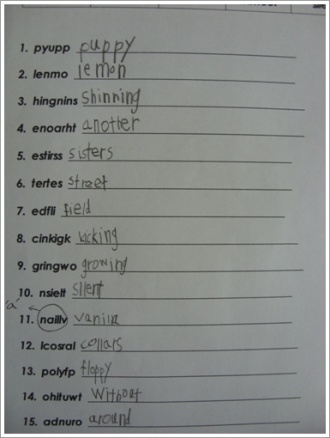 1. pyupp puppy
2. lenmo lemon
3. hingnins shinning
4. enoarht anotter
5. estirss sisters
6. tertes street
7. edfli field
8. cinkigk kicking
9. gringwo growing
10. nsielt silent
"a"
11. naillv vanilla
12. lcosral collars
13. polyfp floppy
14. ohituwt without
15. adnuro around